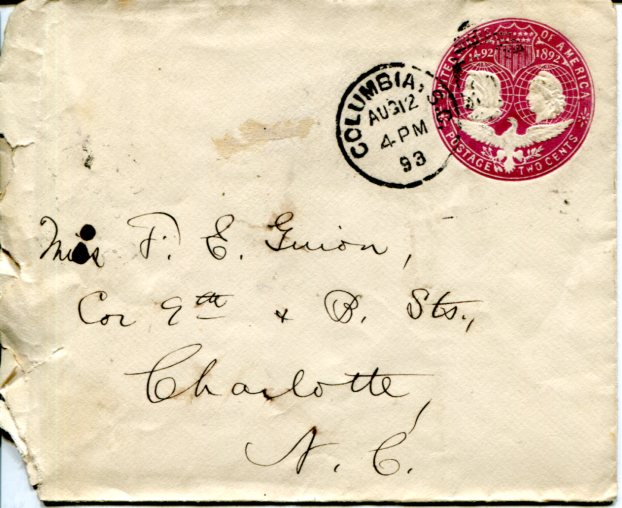 UNITED STATES OF AMERICA
1492 1892
POSTAGE TWO CENTS
COLUMBIA, S.C.
AUG 12
4 PM
93
Miss F. E. Guion,
Cor 9th & B. Sts.,
Charlotte,
N. C.